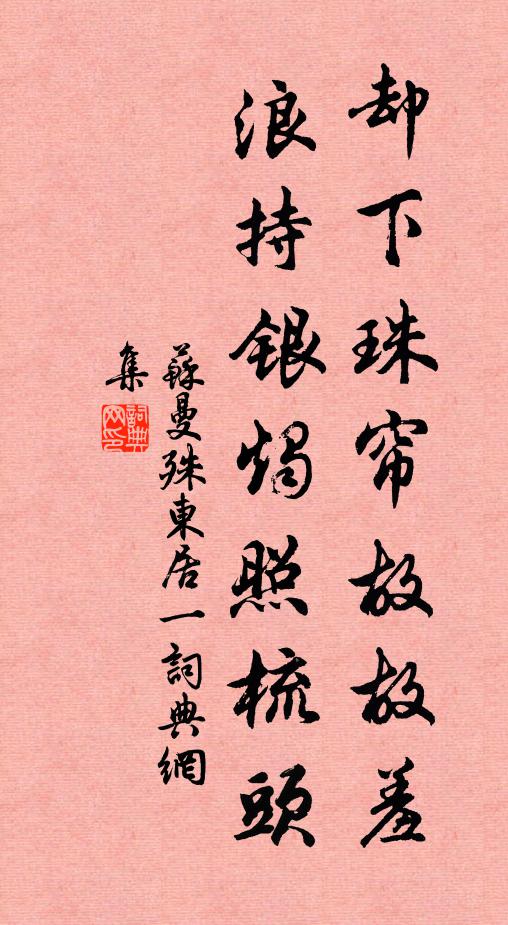 却下珠帘故故羞
浪持銀燭照梳頭
蘇曼殊東居一詞典網
集
詞典
网印